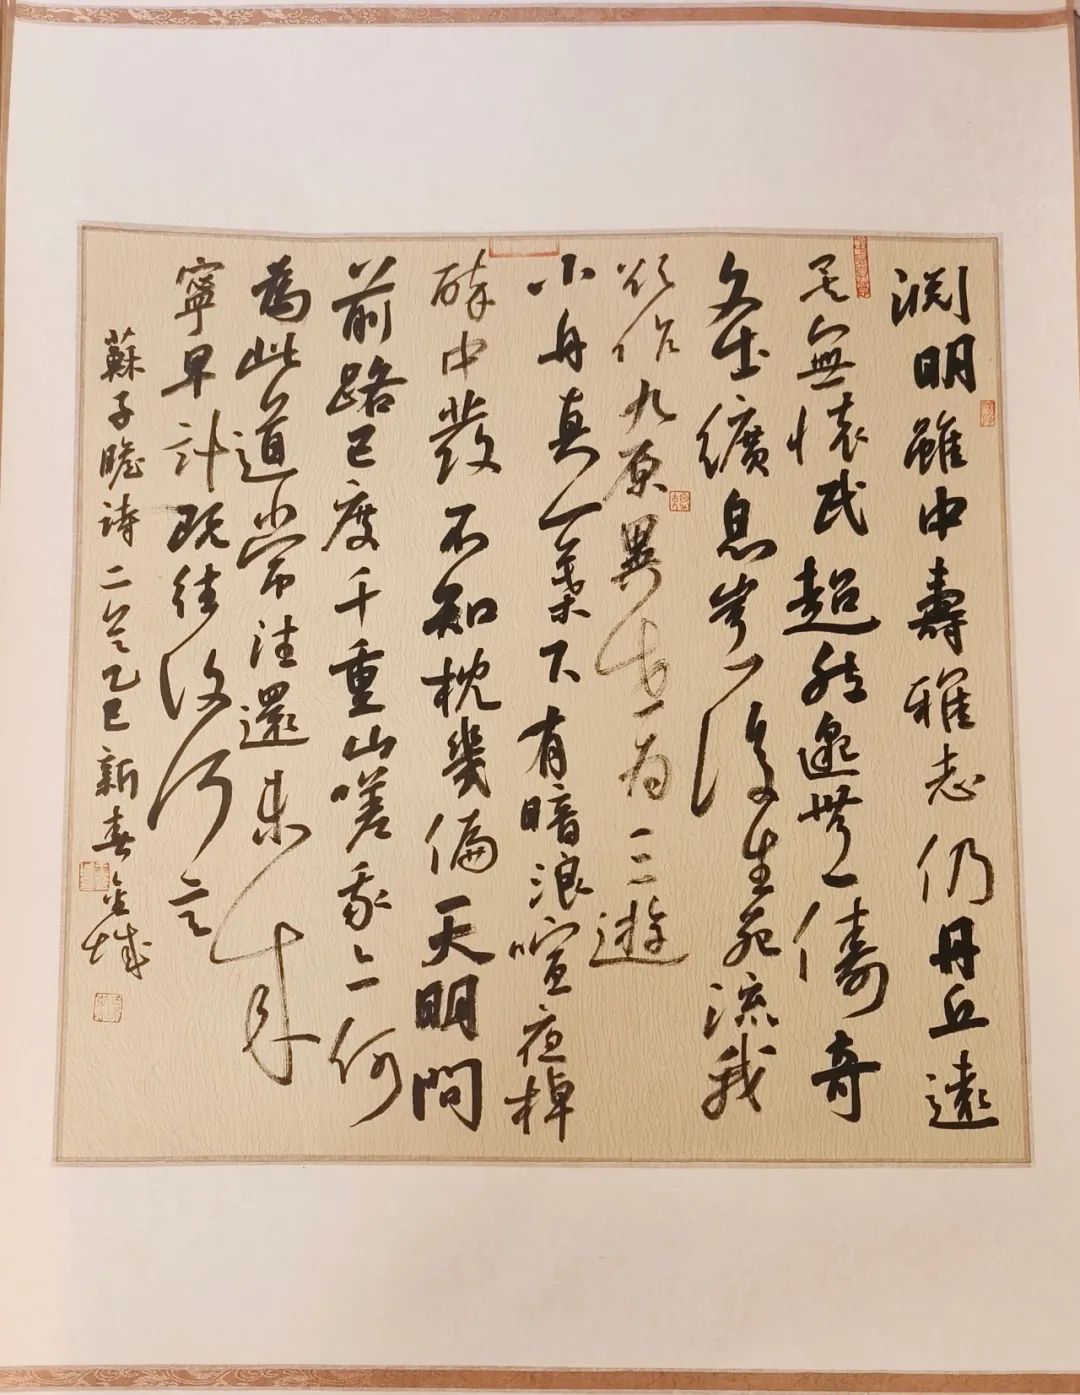 渊明雖中壽雅志仍丹丘遠
矣無懷民超然邈無儔奇
文出纊息豈復生死流我
欲作九原異世為三遊
小舟真一葉下有暗浪喧夜棹
醉中發不知枕幾偏天明問
前路已度千重山嗟我亦何
為此道常往還未來
寧早計既往復何言
蘇子瞻詩二首乙巳新春